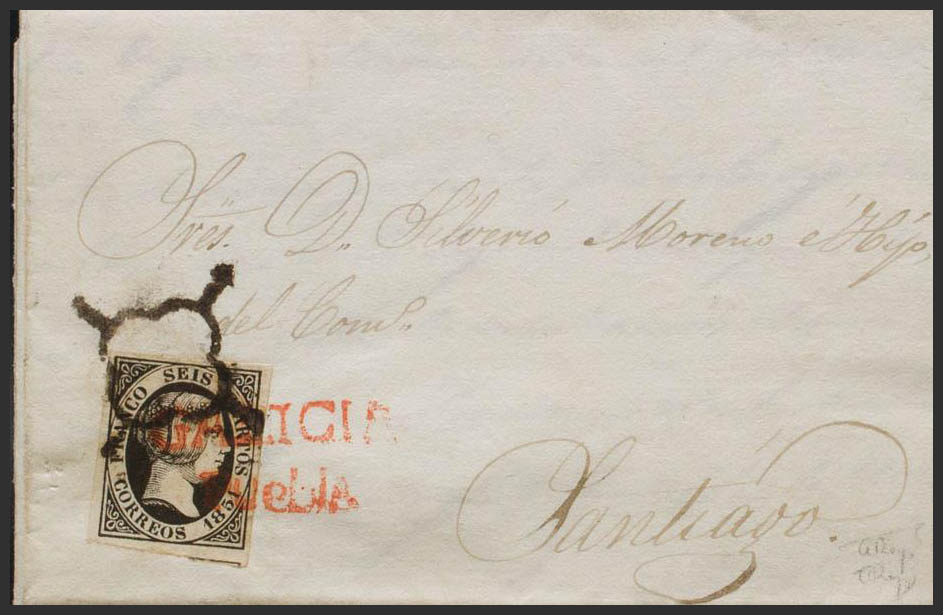 Sres. D. Silverio Moreno é Hijo,
del Comº.
GALICIA
Puebla
FRANCO SEIS CUARTOS
CORREOS 1851
Santiágo.